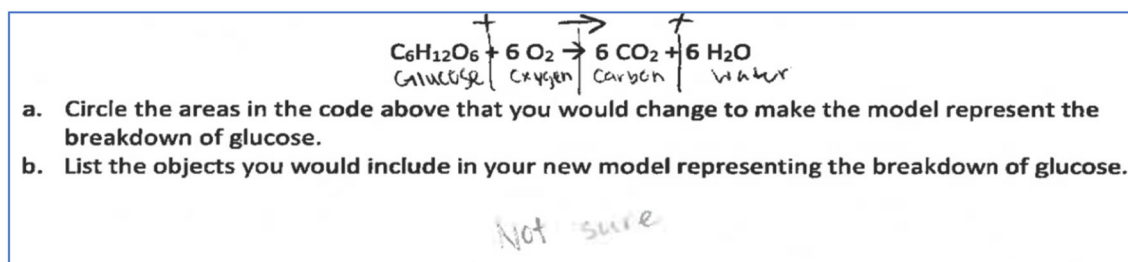 + → +
C₆H₁₂O₆ + 6 O₂ → 6 CO₂ + 6 H₂O
Glucose Oxygen Carbon Water
a. Circle the areas in the code above that you would change to make the model represent the
breakdown of glucose.
b. List the objects you would include in your new model representing the breakdown of glucose.
Not sure